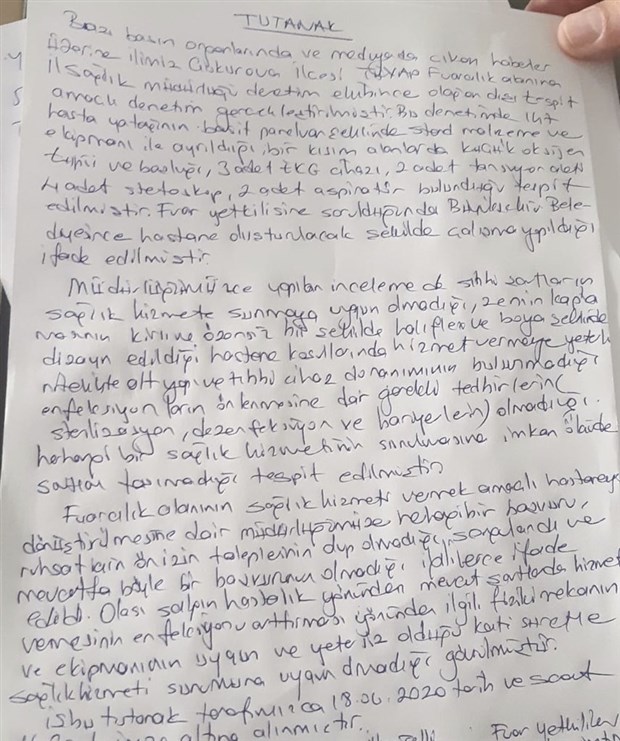 TUTANAK
Bazı basın organlarında ve medyada çıkan haberler
üzerine ilimiz Çukurova ilçesi TÜYAP Fuarcılık alanına
İl Sağlık müdürlüğü denetim ekibince olağan dışı tespit
amaçlı denetim gerçekleştirilmiştir. Bu denetimde
hasta yatağının basit paravan şeklinde stand malzeme ve
ekipmanı ile ayrıldığı, bir kısım alanlarda küçük oksijen
tüpü ve başlığı, 3 adet EKG cihazı, 2 adet tansiyon aleti
4 adet stetoskop, 2 adet aspiratör bulunduğu tespit
edilmiştir. Fuar yetkilisine sorulduğunda Büyükşehir Bele-
diyesince hastane oluşturulacak şekilde çalışma yapıldığı
ifade edilmiştir.
Müdürlüğümüzce yapılan incelemede sıhhi şartların
sağlık hizmete sunmaya uygun olmadığı, zemin kapla
masının kirli ve özensiz bir şekilde halifleks ve boya şeklinde
dizayn edildiği hastane koşullarında hizmet vermeye yeterli
nitelikte alt yapı ve tıbbi cihaz donanımının bulunmadığı
enfeksiyonların önlenmesine dair gerekli tedbirlerin(
sterilizasyon, dezenfeksiyon ve bariyerlerin) olmadığı,
herhangi bir sağlık hizmetinin sunulmasına imkan ölçüde
şartları taşımadığı tespit edilmiştir
Fuarcılık alanının sağlık hizmeti vermek amaçlı hastaneye
dönüştürülmesine dair müdürlüğümüze herhangi bir başvuru,
ruhsat için ön izin taleplerinin olmadığı, soruldu ve
mevcutta böyle bir başvurunun olmadığı ilgililerce ifade
edildi. Olası salgın hastalık yönünden mevcut şartlarda hizmet
vermesinin enfeksiyonu arttırması yönünden ilgili fiziki mekanın
ve ekipmanının uygun ve yetersiz olduğu kati surette
sağlık hizmeti sunumuna uygun olmadığı görülmüştür.
işbu tutanak tarafımızca 18.06.2020 tarih ve saat
altına alınmıştır.
Fuar yetkilileri